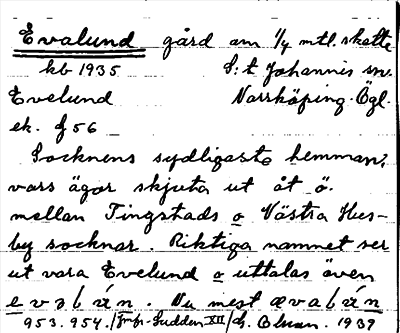 Evalund gård om 1/4 mtl. skatte
kb 1935 S:t Johannis sn.
Evelund Norrköping. Ögl.
ek. f 56
Socknens sydligaste hemman,
vars ägor skjuta ut åt ö.
mellan Tingstads o Västra Hus-
by socknar. Riktiga namnet ser
ut vara Evelund o uttalas även
Nu mest
953. 954. /Jmfr. Sudden XII/ G. Olson. 1939